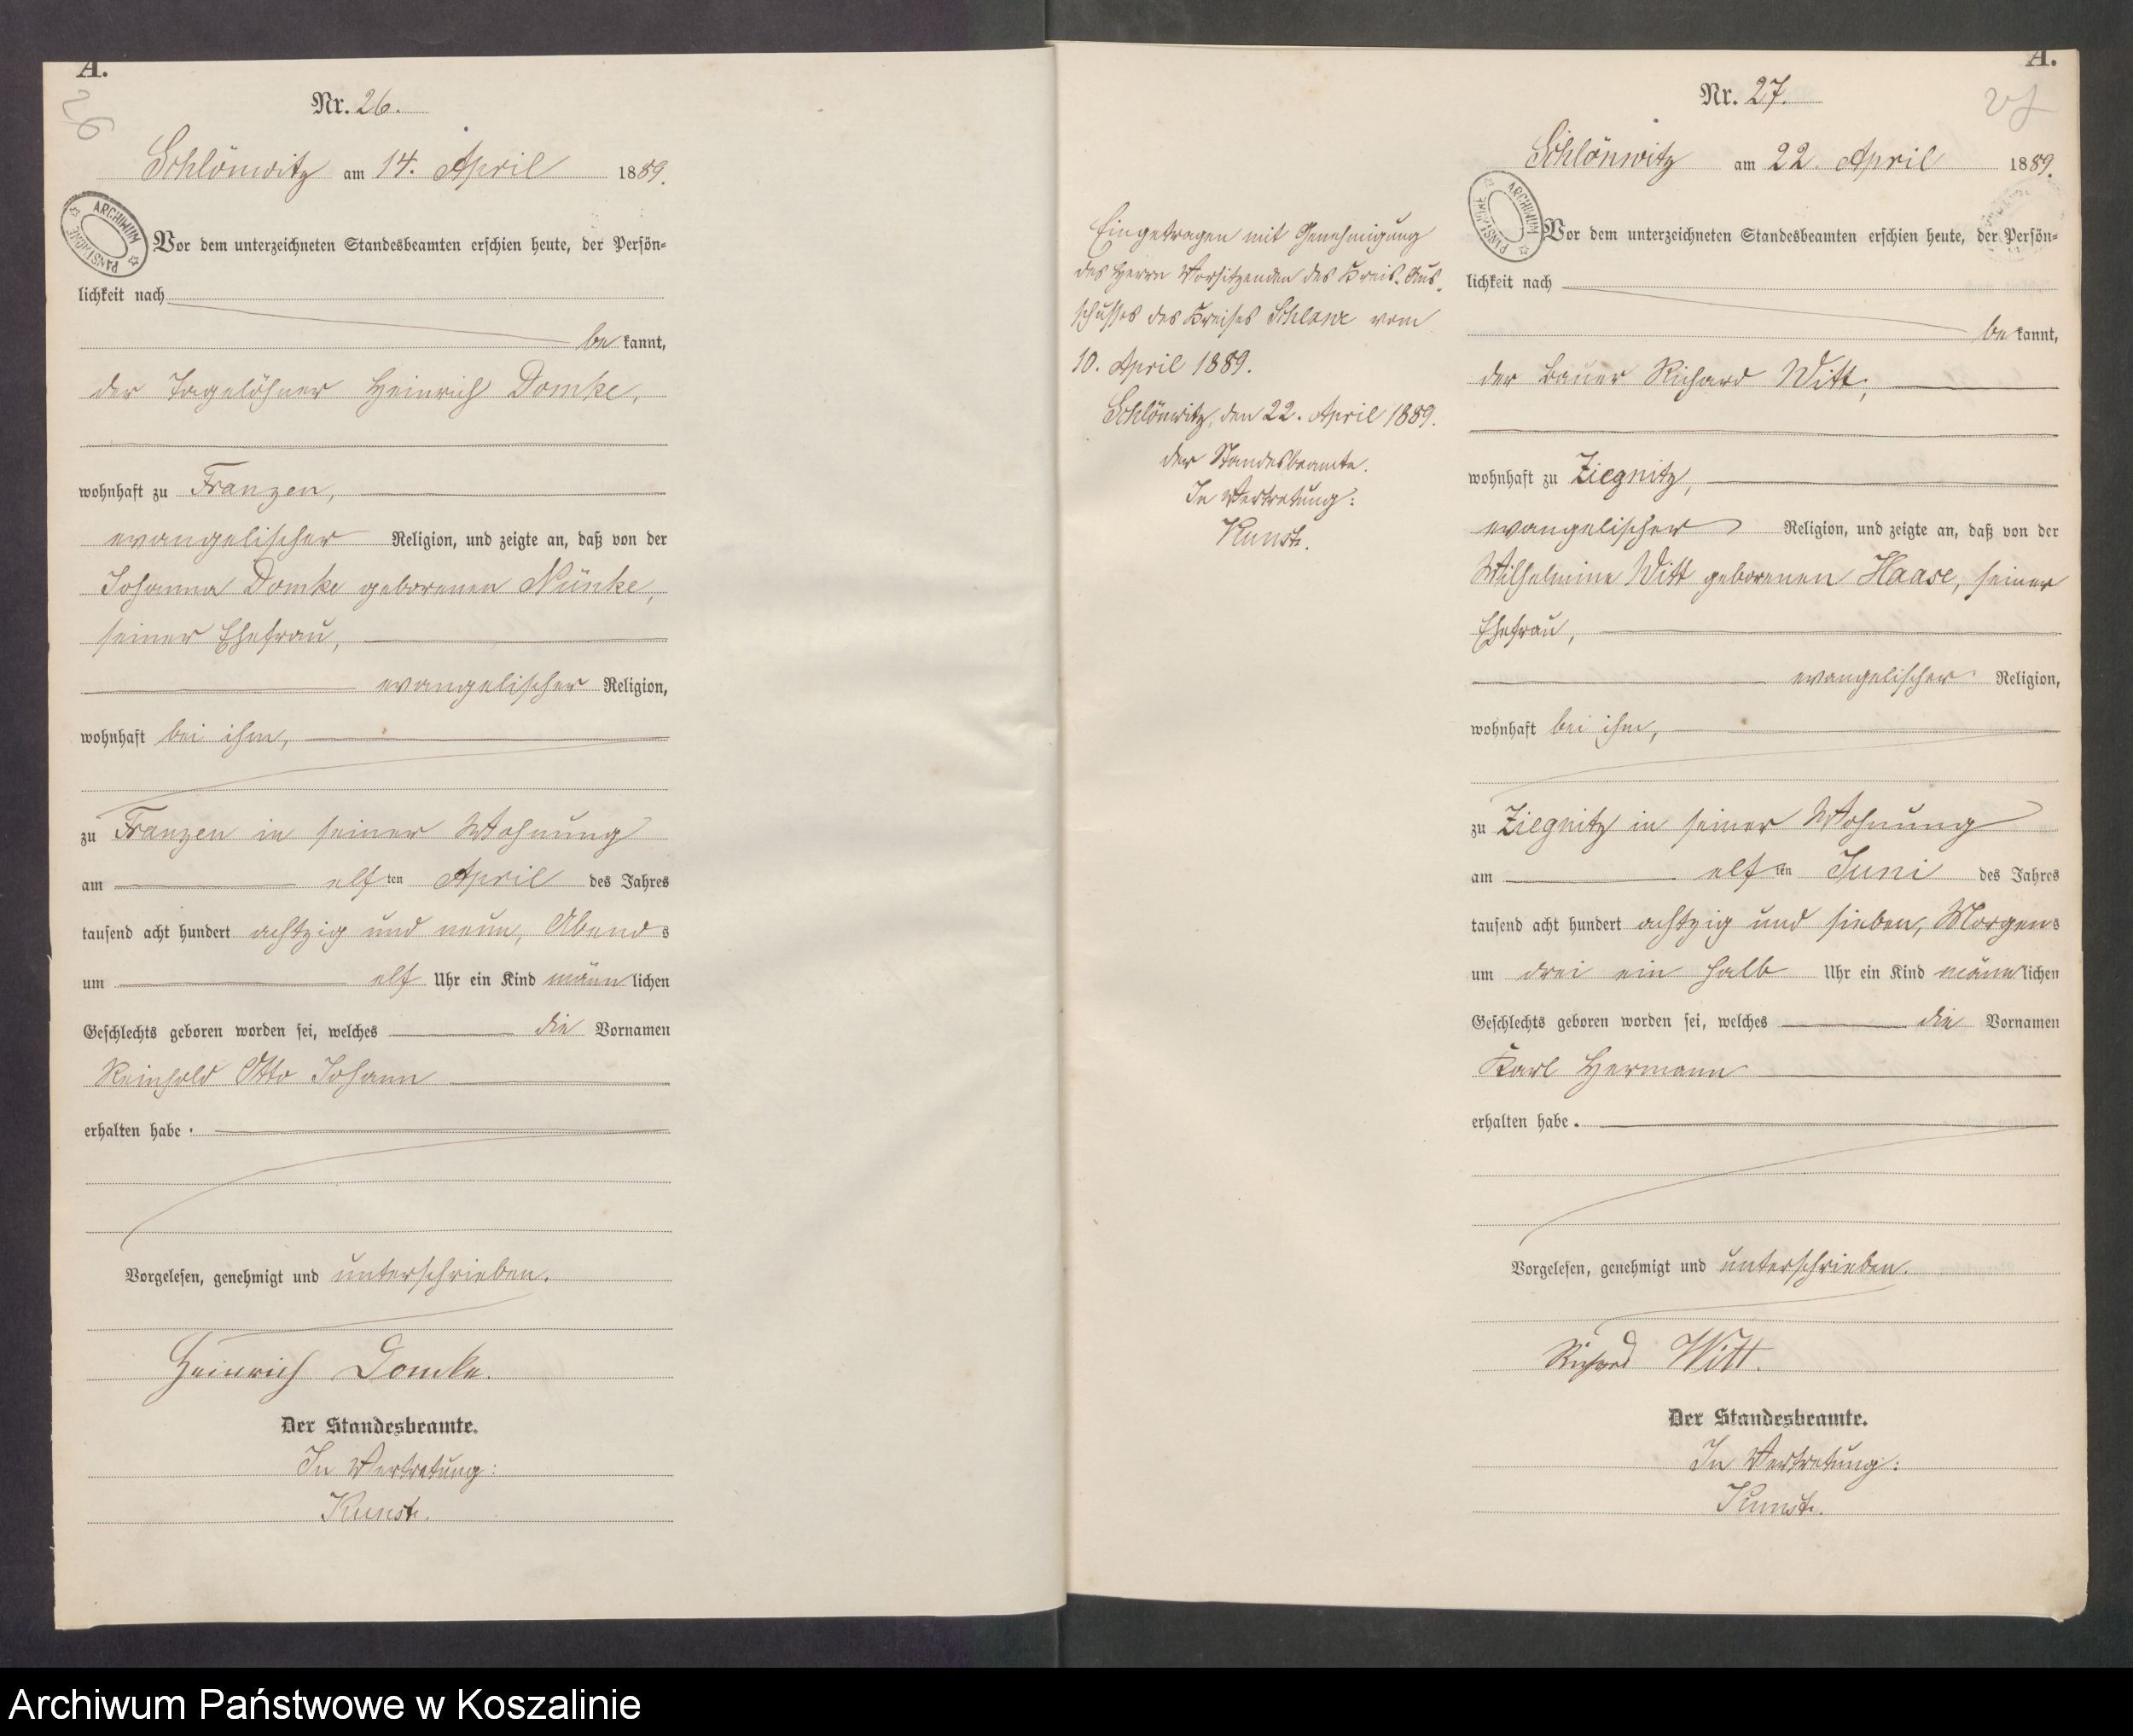 A.
26
Nr. 26.
Schlönwitz am 14. April 1889.
ARCHIWUM PAŃSTWOWE
Vor dem unterzeichneten Standesbeamten erschien heute, der Persön=
lichkeit nach
be kannt,
der Tagelöhner Heinrich Domke,
wohnhaft zu Franzen,
evangelischer Religion, und zeigte an, daß von der
Johanna Domke geborenen Nünke,
seiner Ehefrau,
evangelischer Religion,
wohnhaft bei ihm,
zu Franzen in seiner Wohnung
am elften April des Jahres
tausend acht hundert achtzig und neun, Abends
um elf Uhr ein Kind männlichen
Geschlechts geboren worden sei, welches die Vornamen
Reinhold Otto Johann
erhalten habe.
Vorgelesen, genehmigt und unterschrieben.
Heinrich Domke.
Der Standesbeamte.
In Vertretung:
Kunst.
Eingetragen mit Genehmigung
des Herrn Vorsitzenden des Kreis-Aus-
schusses des Kreises Schlawe vom
10. April 1889.
Schlönwitz, den 22. April 1889.
der Standesbeamte.
In Vertretung:
Kunst.
A.
27
Nr. 27.
Schlönwitz am 22. April 1889.
ARCHIWUM PAŃSTWOWE
Vor dem unterzeichneten Standesbeamten erschien heute, der Persön=
lichkeit nach
be kannt,
der Bauer Richard Witt,
wohnhaft zu Ziegnitz,
evangelischer Religion, und zeigte an, daß von der
Wilhelmine Witt geborenen Haase, seiner
Ehefrau,
evangelischer Religion,
wohnhaft bei ihm,
zu Ziegnitz in seiner Wohnung
am elften Juni des Jahres
tausend acht hundert achtzig und sieben, Morgens
um drei ein halb Uhr ein Kind männlichen
Geschlechts geboren worden sei, welches die Vornamen
Karl Hermann
erhalten habe.
Vorgelesen, genehmigt und unterschrieben.
Richard Witt.
Der Standesbeamte.
In Vertretung:
Kunst.
Archiwum Państwowe w Koszalinie